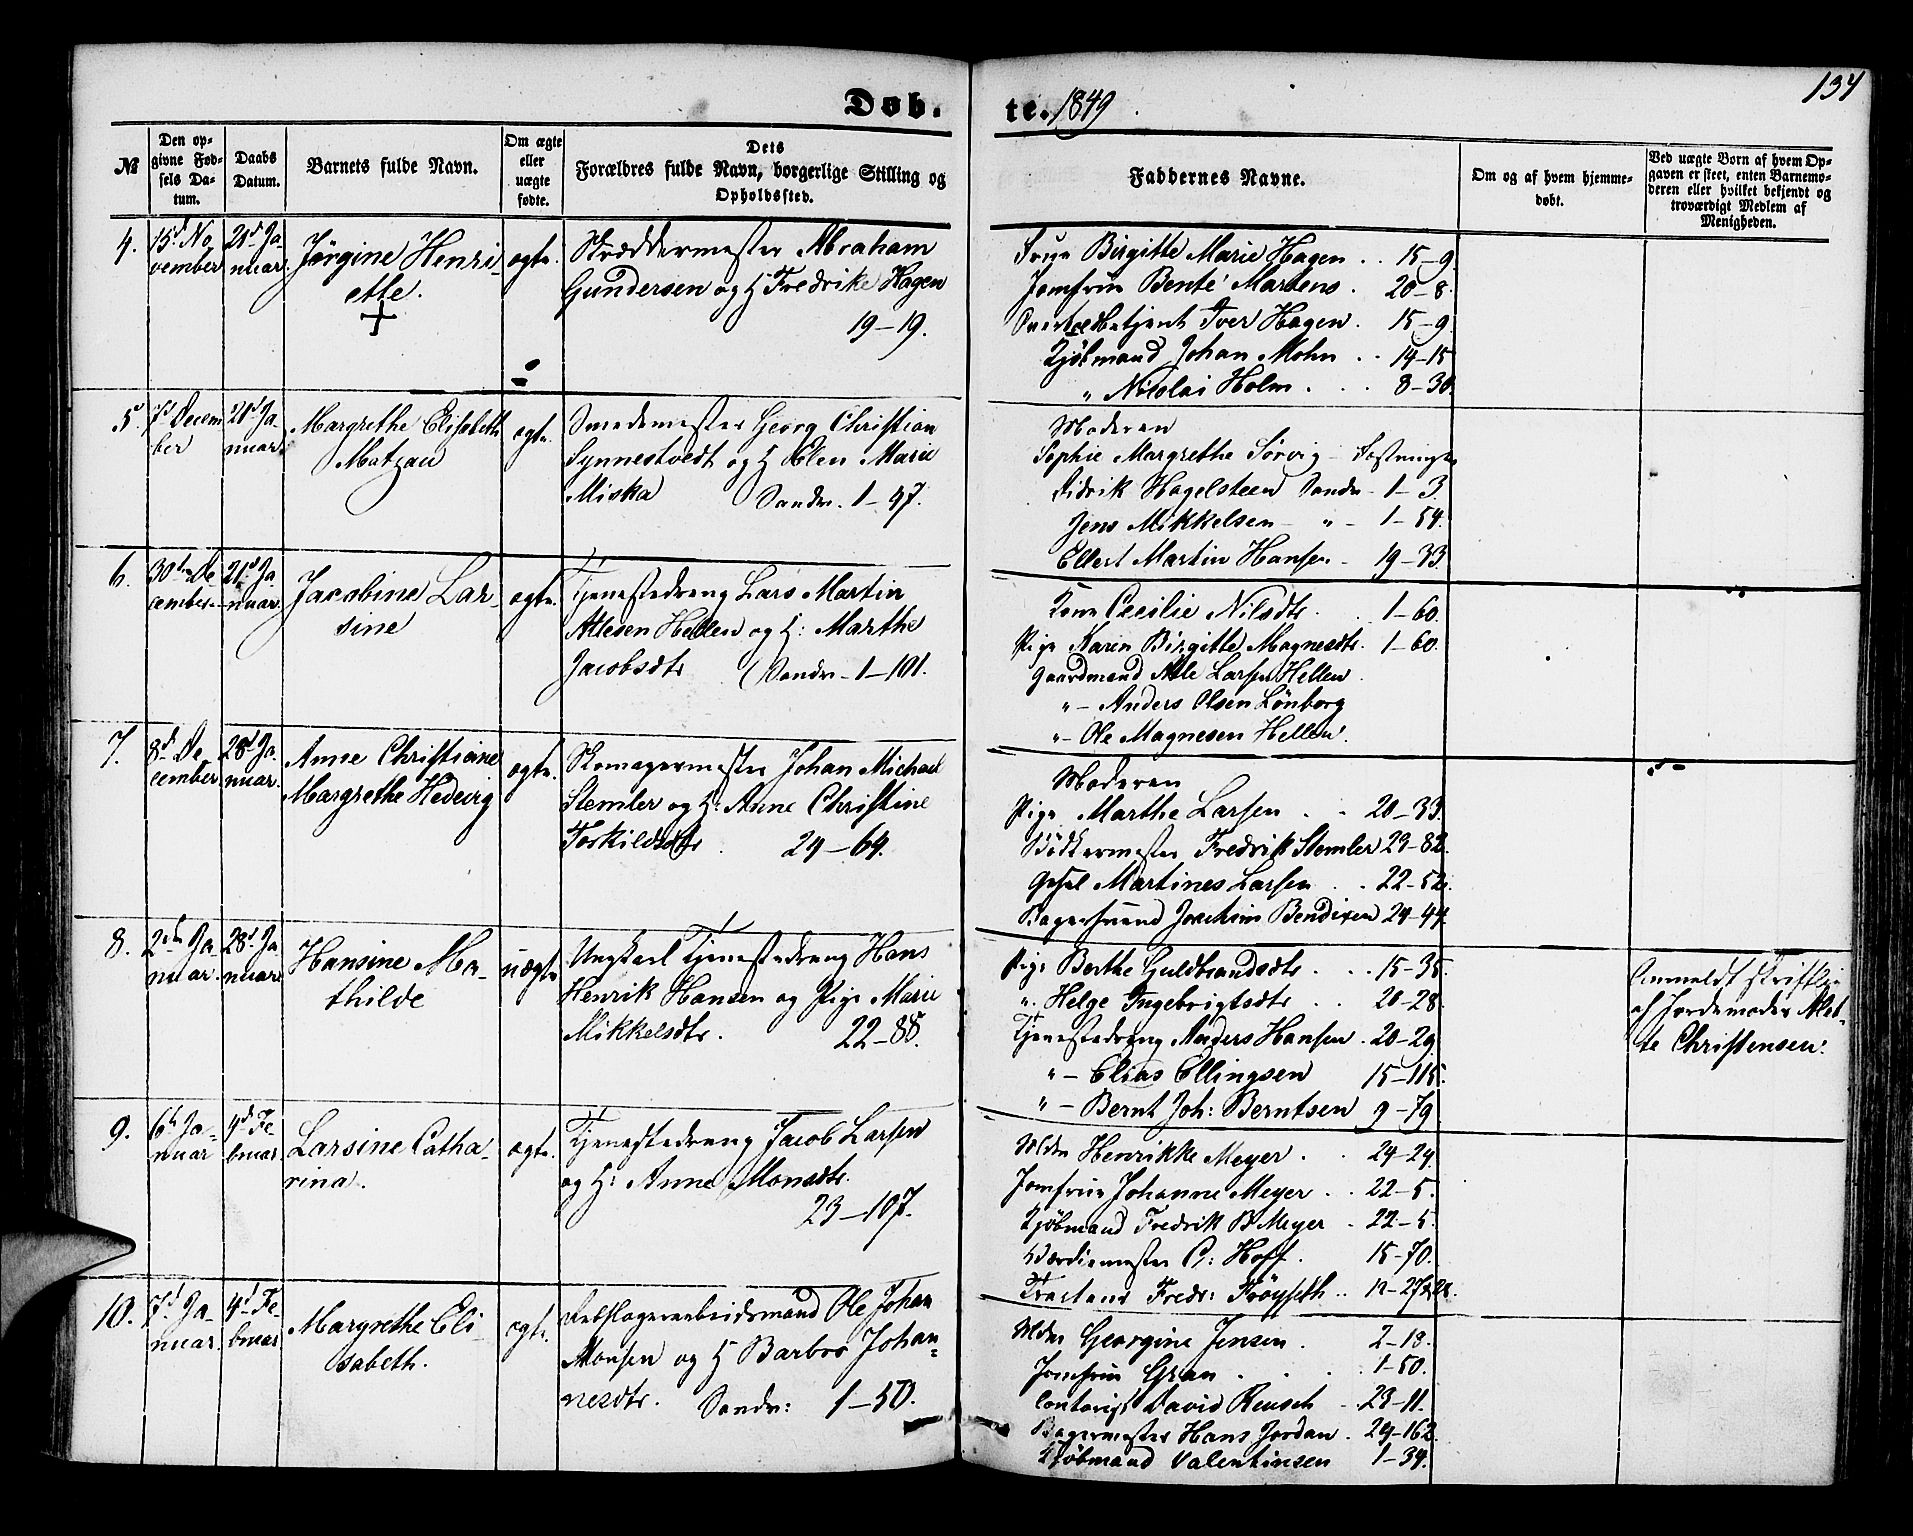 134
Døb. te. 1849
№
Den op-
givne Fød-
sels Da-
tum.
Daabs
Datum.
Barnets fulde Navn.
Om ægte
eller
uægte
fødte.
Dets
Forældres fulde Navn, borgerlige Stilling og
Opholdssted.
Faddernes Navne.
Om og af hvem hjemme-
døbt.
Ved uægte Born af hvem Op-
gaven er skeet, enten Barnemo-
deren eller hvilket bekjendt og
troværdigt Medlem af
Menigheden.
4.
15d No
vember
21d Ja-
nuar.
Jørgine Henri-
ette.
ægte.
Skræddermester Abraham
Gundersen og H Fredrike Hagen
19-19.
Frue Birgitte Marie Hagen . . 15-9.
Jomfrue Bente Martens . 20-8.
Iver Hagen. 15-9.
Kjøbmand Johan Mohn . . 14-15
„ Nicolai Holm . . . 8-30.
5.
7d Decem
ber
21d Ja-
nuar.
Margrethe Elisabeth
Matzau
ægte.
Smedemester Georg Christian
Synnestvedt og H Elen Marie
Miska Sandv. 1-47.
Moderen
Sophie Margrethe Sørvig -
Didrik Hagelsteen Sandv - 1-3.
Jens Mikkelsen - „ - 1-54.
Ellert Martin Hansen - 19-33.
6.
30te De-
cember
21d Ja-
nuar.
Jacobine Lar-
sine
ægte.
Tjenestedreng Lars Martin
Atlesen Hellen og H: Marthe
Jacobsdtr Sandv - 1-101.
Kone Cecilie Nilsdtr . . 1-60.
Pige Karen Birgitte Magnesdtr. 1-60.
Gaardmand Atle Larsen Hellen .
„ - Anders Olsen Lønborg
„ - Ole Magnesen Hellen.
7.
8d De-
cember
28d Ja-
nuar.
Anne Christiane
Margrethe Hedevig
ægte.
Skomagermester Johan Michael
Stemler og H: Anne Christine
Torkildsdtr . 24-64.
Moderen
Pige Marthe Larsen . . 20-33.
Bødkermester Fredrik Stemler 23-82.
Gesel Martines Larsen . . 22-52.
Bagersvend Joachim Bendixen 24-44.
8.
2den Ja-
nuar.
28d Ja-
nuar.
Hansine Ma-
thilde
uægte
Ungkarl Tjenestedreng Hans
Henrik Hansen og Pige Marie
Mikkelsdtr. 22-88.
Pige Berthe Guldbrandsdtr . . . 15-35.
„ Helge Ingebrigtsdtr . . 20-28.
Tjenestedreng Anders Hansen . 20-29.
„ - Elias Ellingsen 15-115.
„ - Bernt Joh: Berntsen 9-79
Anmeldt skriftlig
af Jordemoder Met-
te Christensen.
9.
6te Ja-
nuar
4d Fe-
bruar.
Larsine Catha-
rina.
ægte.
Tjenestedreng Jacob Larsen
og H: Anne Monsdtr.
23-107.
Mdm Henrikke Meyer . . 24-24.
Jomfrue Johanne Meyer . . 22-5.
Kjøbmand Fredrik B Meyer . 22-5.
C: Hoff . 15-70.
Fredr: Frøyseth . .
10.
7d Ja-
nuar.
4d Fe-
bruar
Margrethe Eli-
sabeth.
ægte.
Rebslagerarbeidsmand Ole Johan
Monsen og H Barbro Johan-
nesdtr. Sandv: 1-50.
Mdm Georgine Jensen . 2-18.
Jomfrue Gran . . . . 1-50.
Contorist David Reusch . 23-11.
Bagermester Hans Jordan . 24-162.
Kjøbmand Valentinsen 1-34.